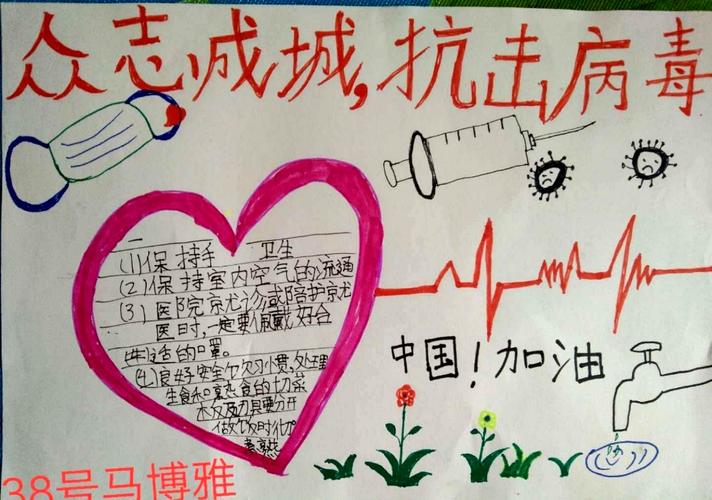 众志成城,抗击病毒
(1)保持手 卫生
(2)保持室内空气的流通
(3)医院京尤诊或陪护京尤
医时,一定要佩戴好合
适的口罩。
良好安全饮习惯,处理
生食和烹熟食的切菜
板及刀具要分开
做饭时
煮熟
中国!加油
38号马博雅